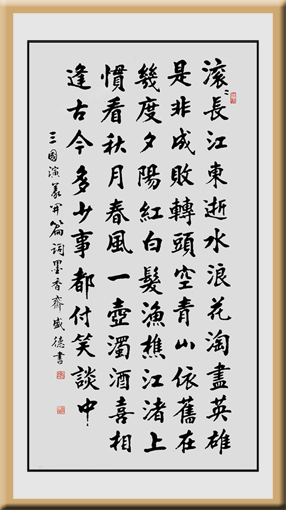 滚〻長江東逝水浪花淘盡英雄
是非成敗轉頭空青山依舊在
幾度夕陽紅白髮漁樵江渚上
慣看秋月春風一壺濁酒喜相
逢古今多少事都付笑談中
三國演義開篇词墨香齋盛德書